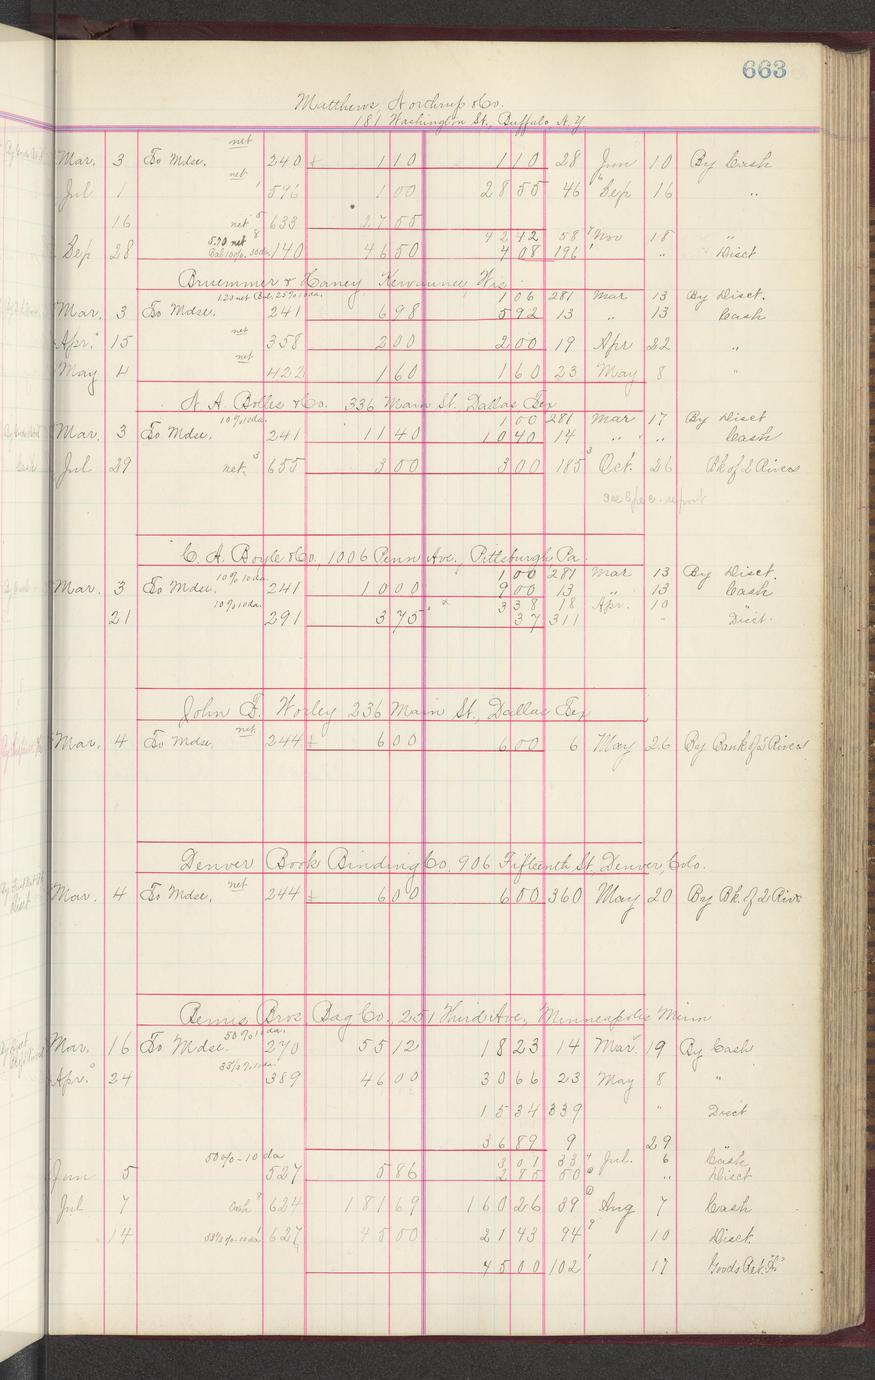 663
Matthews, Northrup & Co.
181 Washington St., Buffalo, N.Y
Mar. 3 To Mdse. net 240 1 10 1 10 28 Jun 10 By Cash
Jul 1 net 596 1 00 28 55 46 Sep 16 "
16 net 633 27 55
42 42 58 Nov 18 "
Sep 28 5.70 net Bal 10% 30 da 140 46 50 4 08 196 " Disct
Bruemmer & Haney Kewaunee Wis.
1 06 281 Mar 13 By Disct.
Mar. 3 To Mdse. 241 6 98 5 92 13 " 13 Cash
Apr. 15 net 358 2 00 2 00 19 Apr 22 "
May 4 net 422 1 60 1 60 23 May 8 "
N. A. Bolles & Co. 336 Main St. Dallas Tex
10% 10 da. 1 00 281 Mar 17 By Disct
Mar. 3 To Mdse. 241 11 40 10 40 14 " " Cash
Jul 29 net 655 3 00 3 00 185 Oct. 26 Bk of 2 Rivers
report
C. A. Boyle & Co., 1006 Penn Ave., Pittsburgh Pa.
10% 10 da. 1 00 281 Mar 13 By Disct.
Mar. 3 To Mdse. 241 10 00 9 00 13 " 13 Cash
10% 10 da. 3 38 18 Apr. 10 "
21 291 3 75 37 311 " Disct.
John F. Worley 236 Main St., Dallas Tex
Mar. 4 To Mdse. net 244 6 00 6 00 6 May 26 By Bank of 2 Rivers
Denver Book Binding Co. 906 Fifteenth St. Denver, Colo.
Mar. 4 To Mdse. net 244 6 00 6 00 360 May 20 By Bk. of 2 Rivs
Bemis Bros Bag Co., 251 Third Ave., Minneapolis Minn
Mar. 16 To Mdse. 50% 10 da. 270 55 12 18 23 14 Mar. 19 By Cash
Apr. 24 10 da 389 46 00 30 66 23 May 8 "
15 34 339 " Disct
36 89 9 29 "
50% - 10 da 3 01 33 Jul. 6 Cash
Jun 5 527 5 86 2 85 50 " Disct
Jul 7 Cash 624 181 69 160 26 89 Aug 7 Cash
14 10 da 627 45 00 21 43 94 10 Disct.
45 00 102 17 Goods Ret.